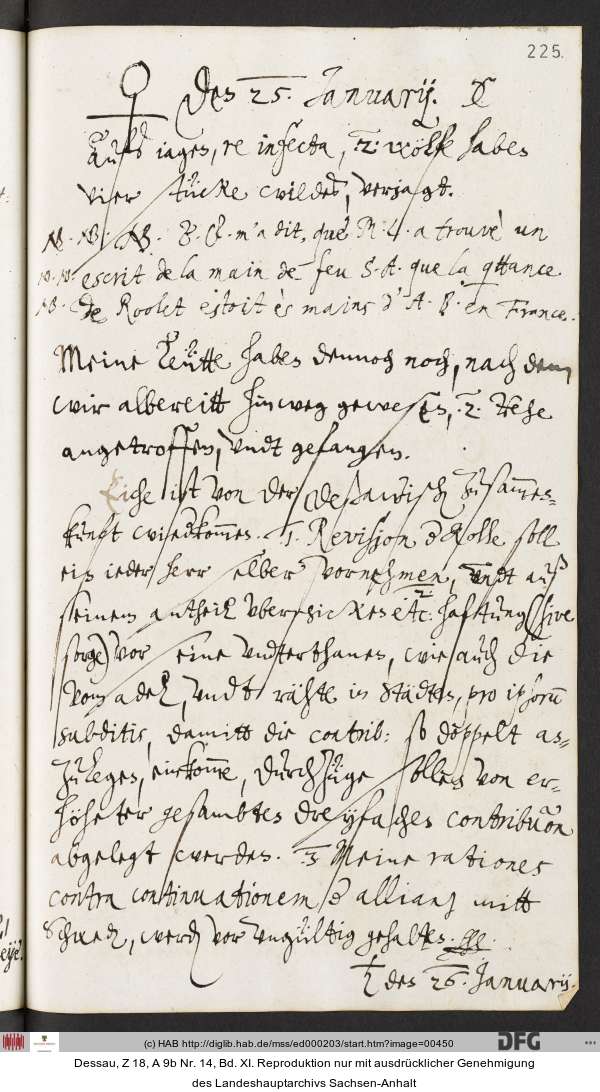 225.
♀ den 25. Januarij. ☾
Aufs iagen, re infecta, 2: wölfe haben
vier stücke wildes, verjagt.
NB. NB. NB. T. Q. m'a dit, que M. L. a trouvè un
N. N. escrit de la main de feu S. A. que la qttance
NB. de Roolet estoit ès mains d'A. B. en France.
Meine Leütte haben dennoch noch, nach dem
wir albereitt hinweg gewesen, 2. Rehe
angetroffen, undt gefangen.
ist von der Deßawisch Zusammen-
kunft wiedkommen. 1. Revision d Rolle soll
ein ieder herr selber vornehmen, undt auß
seinem antheil uberschicken etc: hafftung (sive
sorge) vor seine unterthanen, wie auch die
vom adel, undt rähte in Städten, pro ipsorum
subditis, damitt die contrib: so doppelt an-
Zulegen, einkomme, durchzüge sollen von er-
höheter gesambten dreyfachen contribution
abgelegt werden. 3 Meine rationes
contra continuationem d allianz mitt
Schwed, werd vor ungültig gehalten.
♄ den 26. Januarij.
(c) HAB http://diglib.hab.de/mss/ed000203/start.htm?image=00450
DFG
Dessau, Z 18, A 9b Nr. 14, Bd. XI. Reproduktion nur mit ausdrücklicher Genehmigung
des Landeshauptarchivs Sachsen-Anhalt